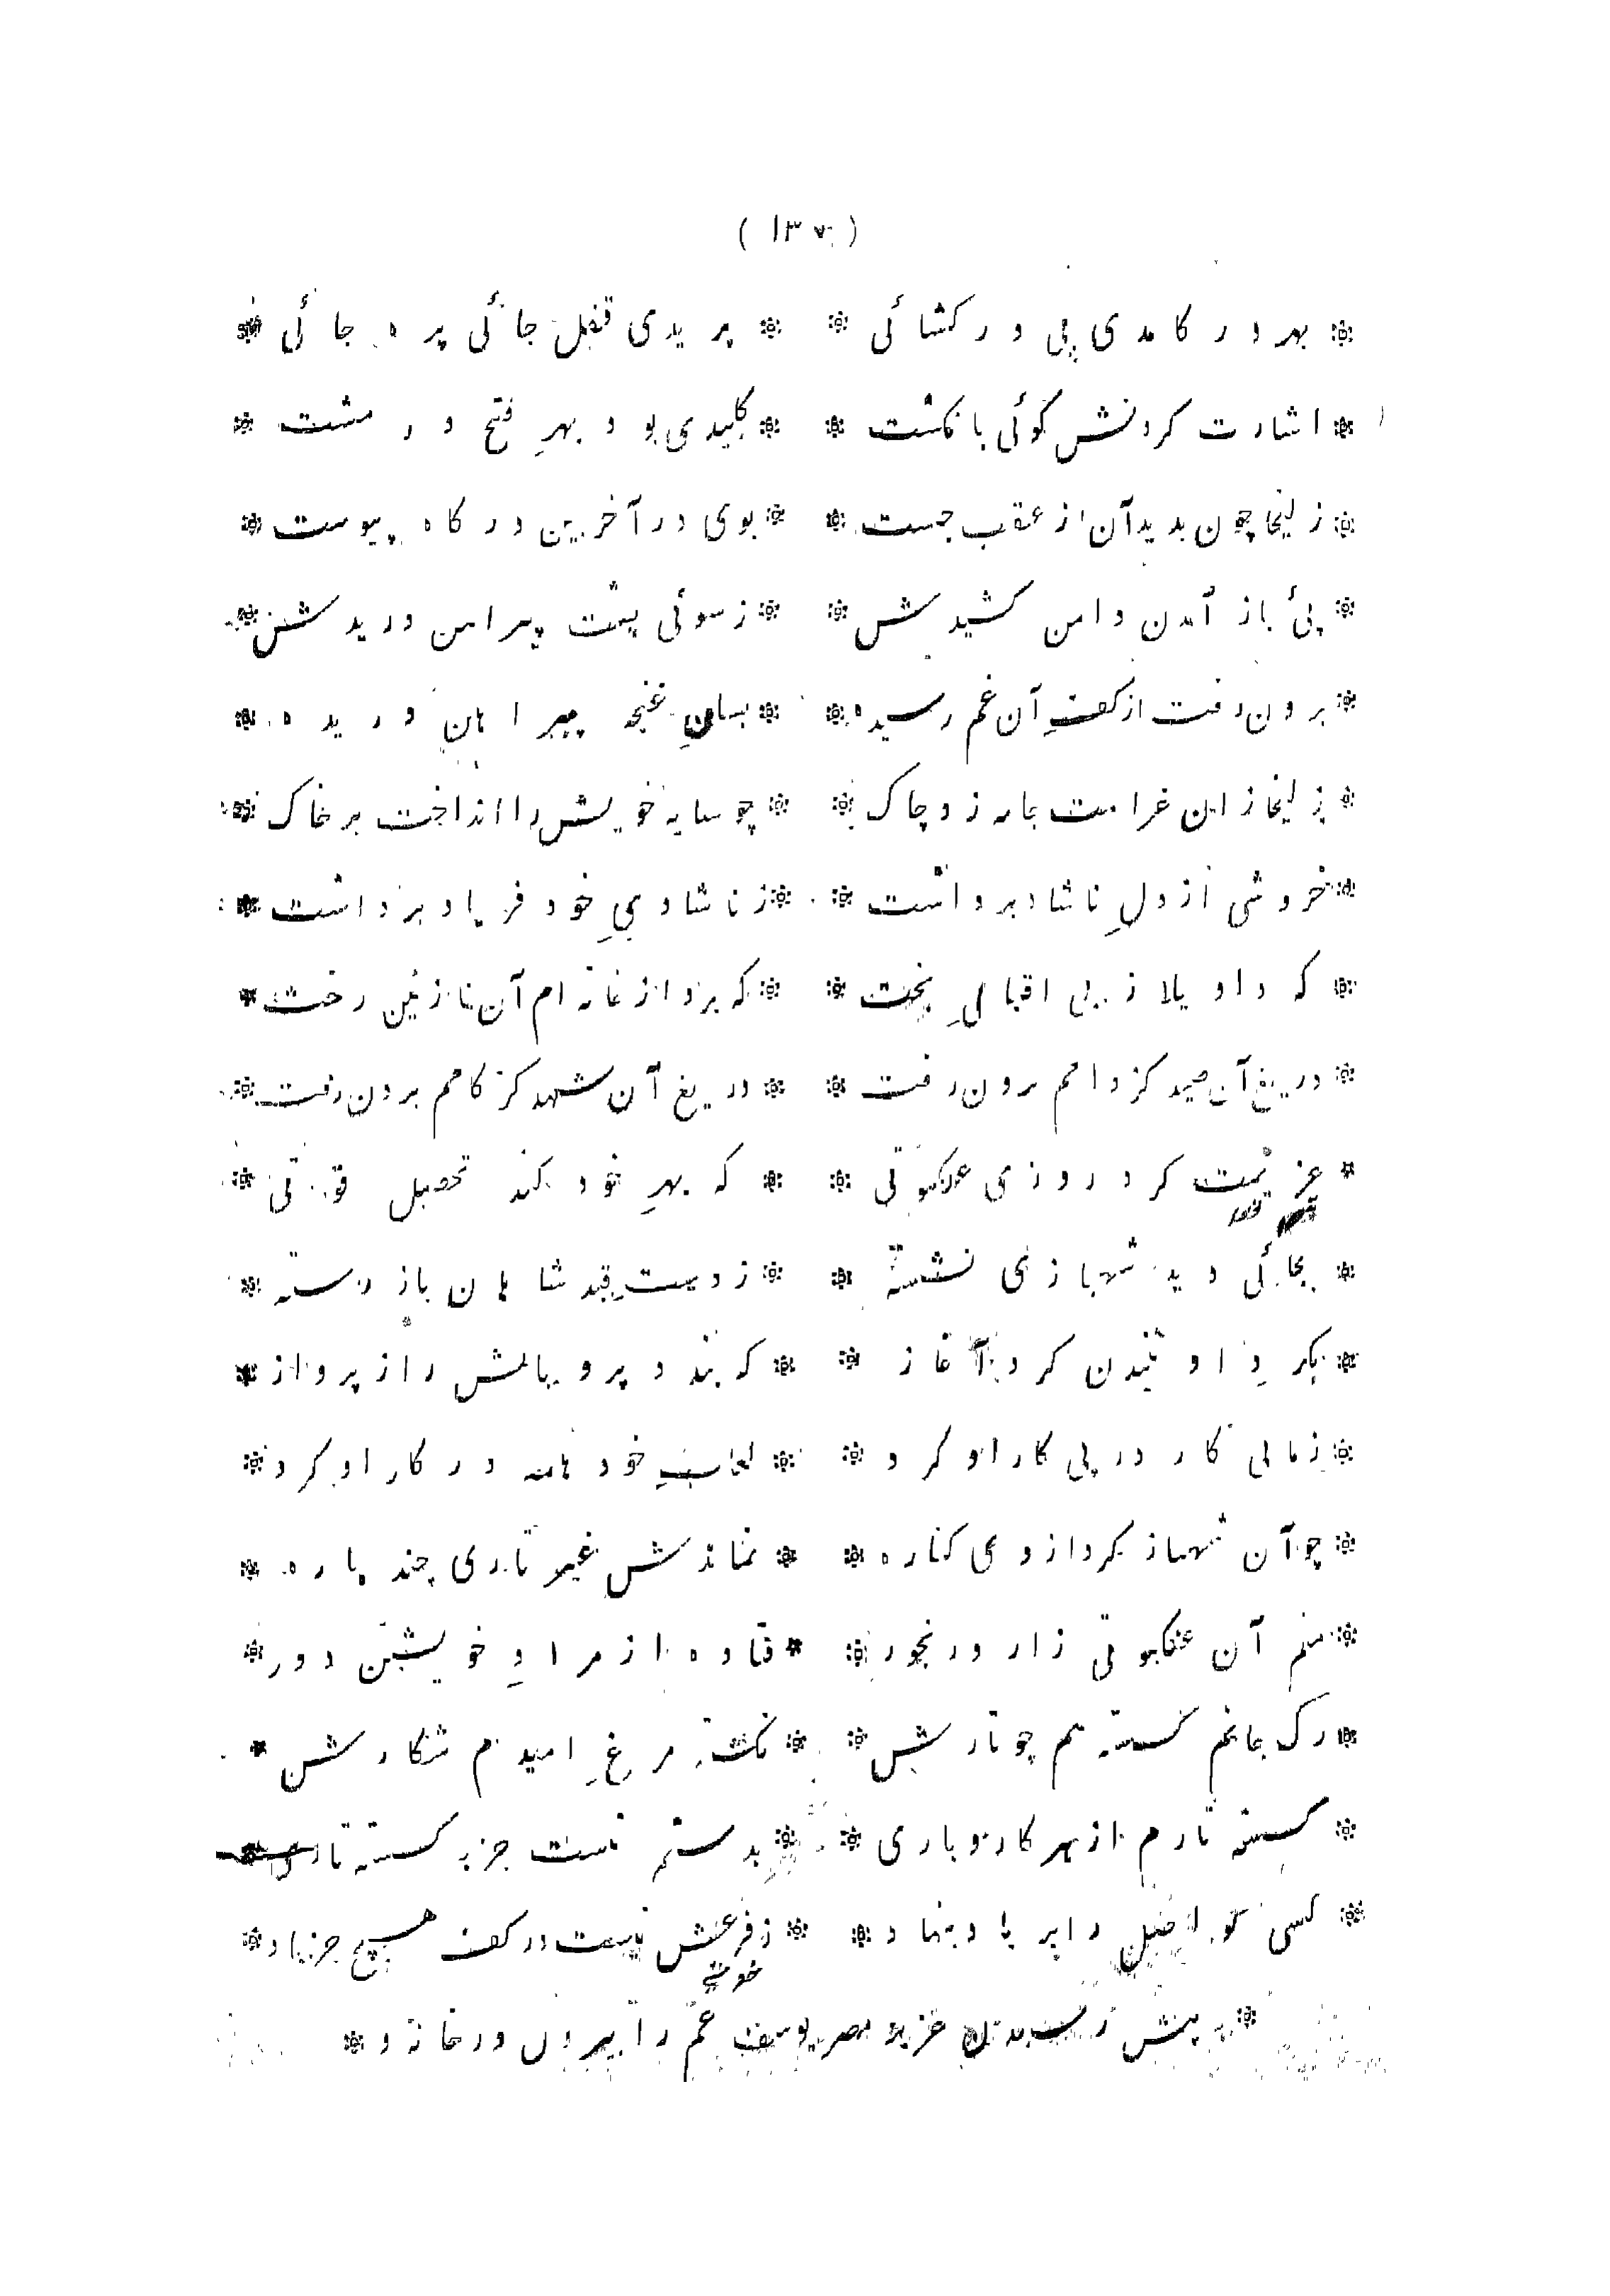 ( ١٣٧ )
* بهر در کامدی پی در کشائی * * پریدی قفل جائی پره جائی *
* اشارت کردنش کوئی بانکشت * * کلیدی بود بهرِ فتح در مشت *
* زلیخا چون بدید آن از عقب جست * * بوی در آخرین درکاه پیوست *
* پیٔ باز آمدن دامن کشیدش * * ز سوئی پشت پیراهن دریدش *
* برون رفت از کفِ آن غم رسیده * * بسانِ غنچه پیراهان دریده *
* زلیخا زان غرامت جامه زد چاک * * چو سایه خویش را انداخت بر خاک *
* خروشی از دلِ ناشاد برداشت * * ز ناشادیِ خود فریاد برداشت *
* که واویلا ز بی اقبالیِ بخت * * که برد از خانه ام آن نازنین رخت *
* دریغ آن صید کز دامم برون رفت * * دریغ آن شهد کز کامم برون رفت *
* عزیمت کرد روزی عنکبوتی * * که بهرِ خود کند تحصیل قوتی *
قصد
* بجائی دید شهبازی نشسته * * ز دستِ قید شاهان باز رسته *
* بکردِ او تنیدن کرد آغاز * * که بندد پر و بالش را ز پرواز *
* زمانی کار در پی کار او کرد * * لعابِ خود همه در کار او کرد *
* چو آن شهباز کرد از وی کناره * * نماندش غیر تاری چند پاره *
* منم آن عنکبوتی زار و رنجور * * فتاده از مرادِ خویشتن دور *
* رک جانم کسسته همچو تارش * * نکشته مرغِ امیدم شکارش *
* کسسته تارم از هر کار و باری * * بدستم نیست جز بکسسته تاری *
* کسی کو اصل را بر باد بنهاد * * ز فرعش نیست در کف هیچ جز باد *
خوشی
* پیش رسیدن عزیز مصر یوسف عم را بیرون در خانه و *